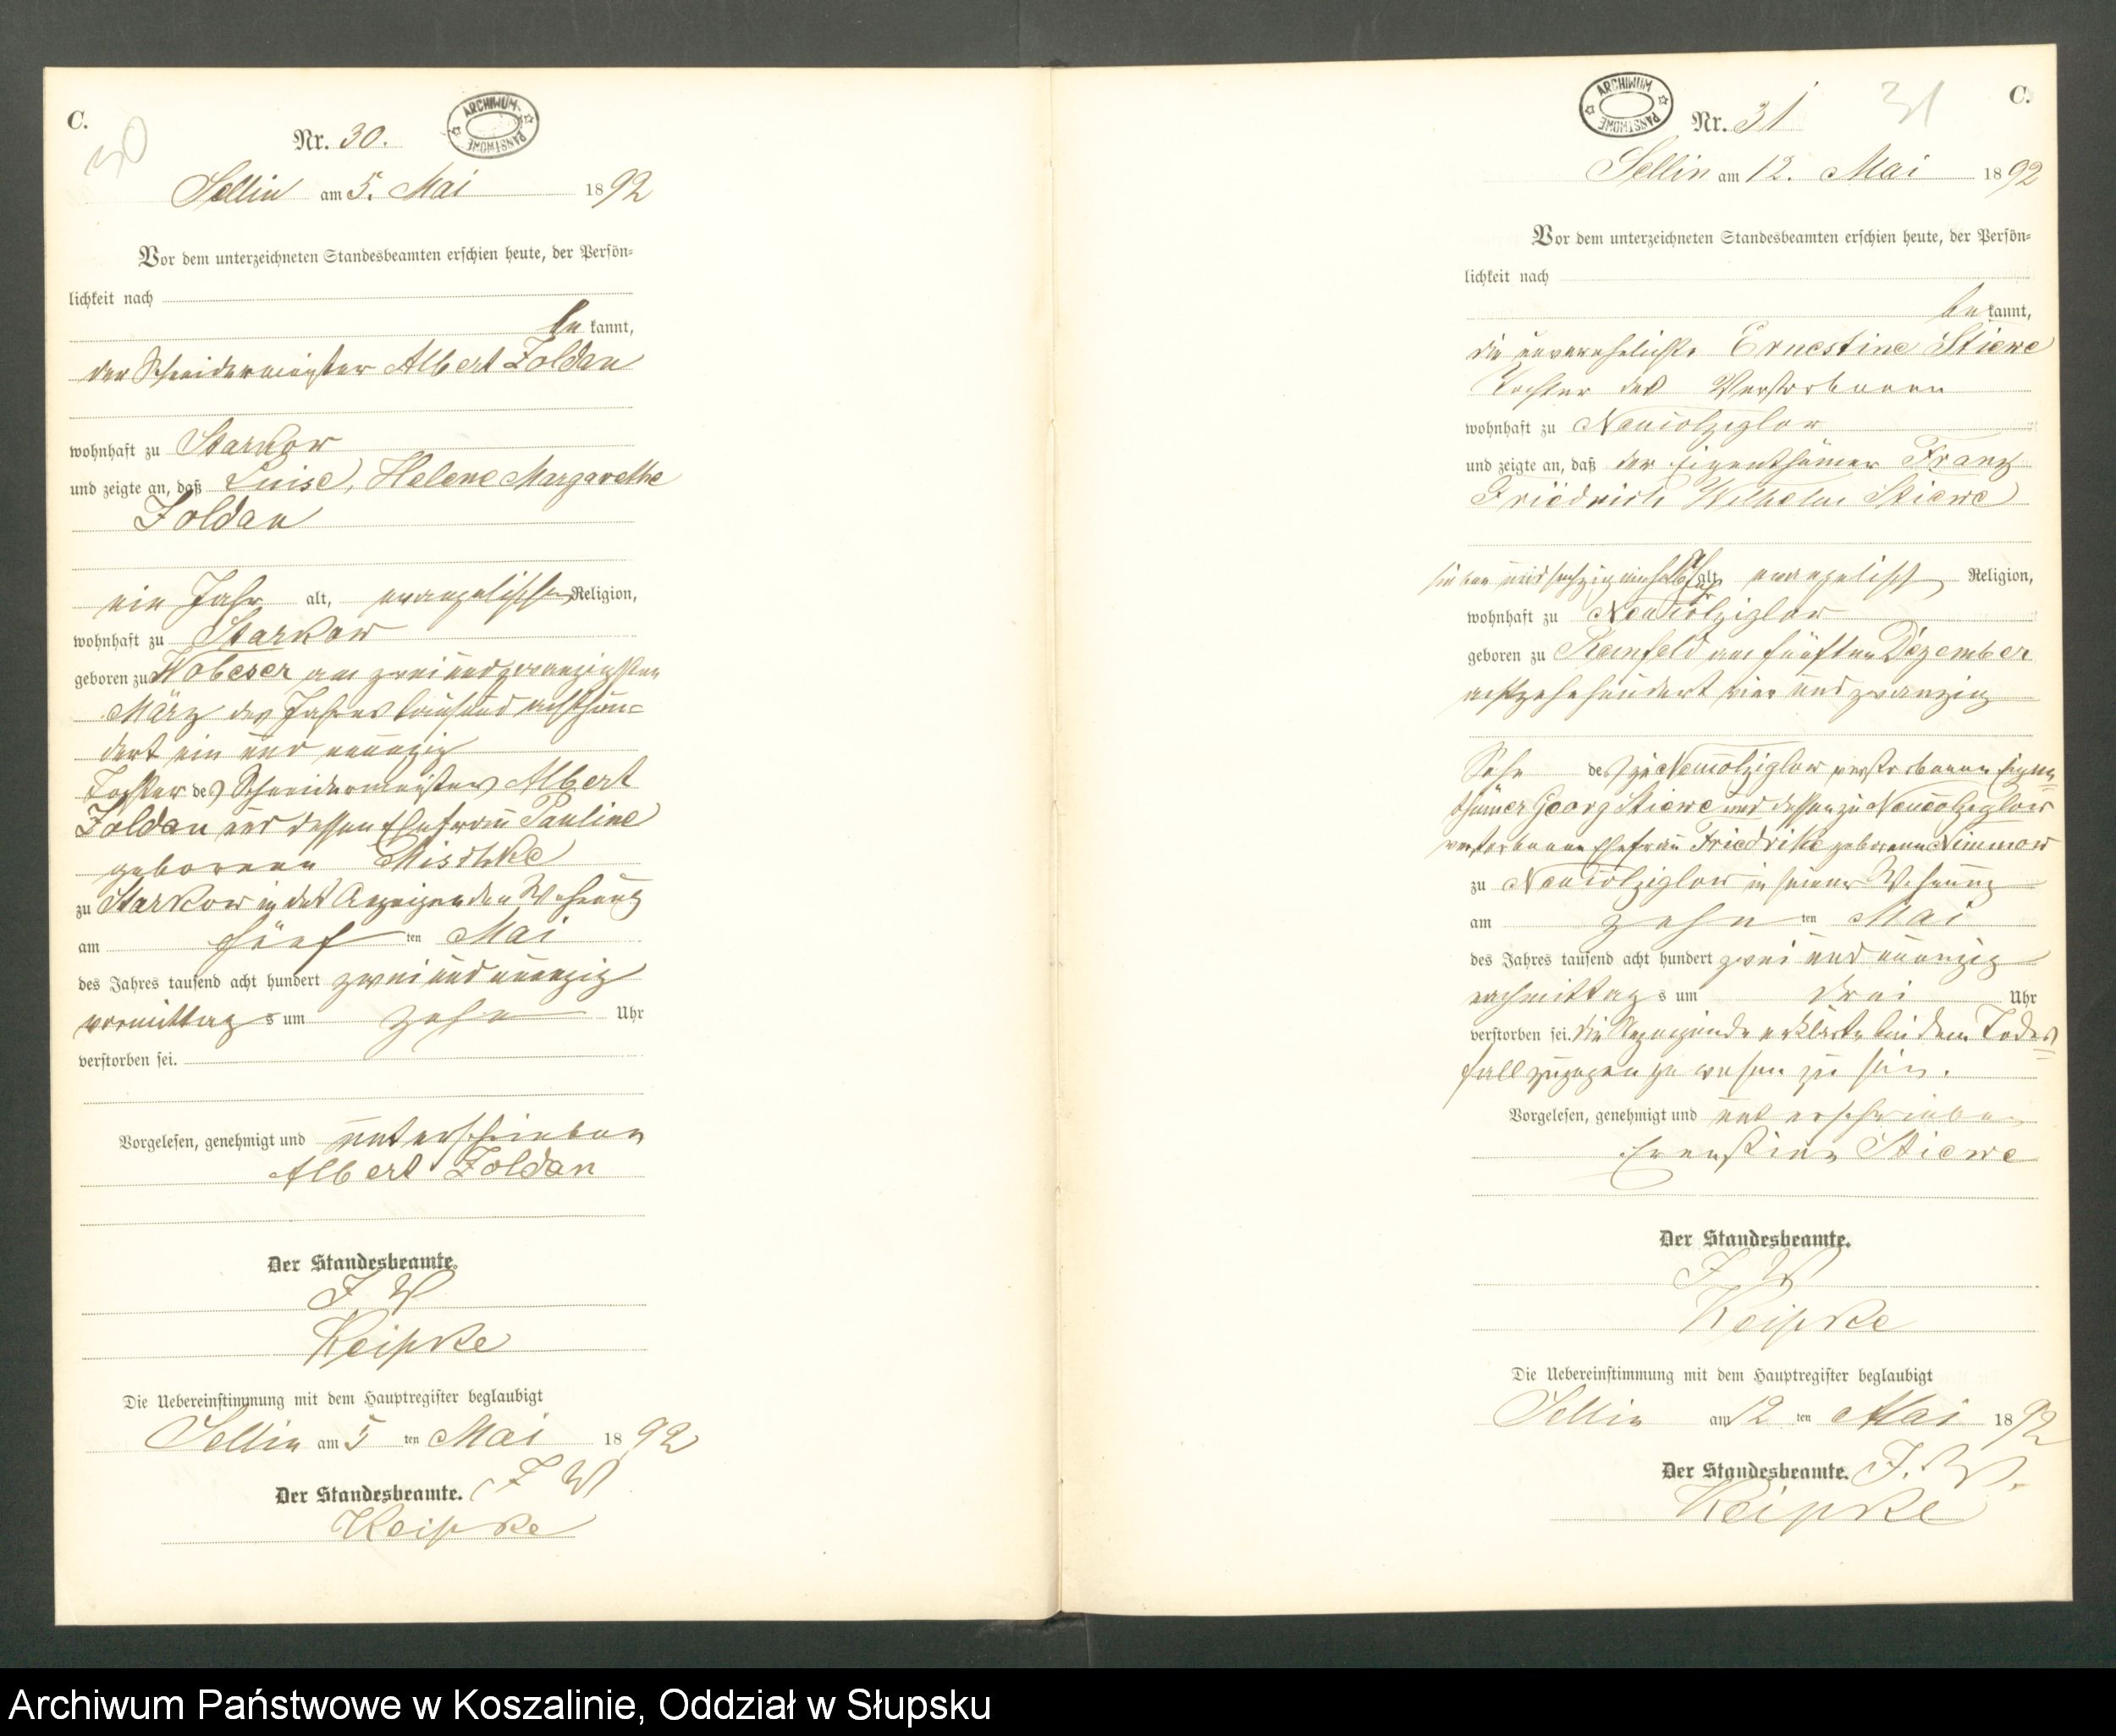 C.
30
Nr. 30.
ARCHIWUM PAŃSTWOWE
Sellin am 5. Mai 1892
Vor dem unterzeichneten Standesbeamten erschien heute, der Persön-
lichkeit nach
be kannt,
der Schneidermeister Albert Foldan
wohnhaft zu Starkow
und zeigte an, daß Luise, Helene Margarethe
Foldan
ein Jahr alt, evangelischer Religion,
wohnhaft zu Starkow
geboren zu Wobeser am zwei und zwanzigsten
März des Jahres tausend achthun-
dert ein und neunzig
Tochter des Schneidermeisters Albert
Foldan und dessen Ehefrau Pauline
geborenen Mischke
zu Starkow in des Anzeigenden Wohnung
am fünf ten Mai
des Jahres tausend acht hundert zwei und neunzig
vormittag s um zehn Uhr
verstorben sei.
Vorgelesen, genehmigt und unterschrieben
Albert Foldan
Der Standesbeamte.
I W
Keipke
Die Uebereinstimmung mit dem Hauptregister beglaubigt
Sellin am 5 ten Mai 1892
Der Standesbeamte. I W
Keipke
C.
31
Nr. 31
ARCHIWUM PAŃSTWOWE
Sellin am 12. Mai 1892
Vor dem unterzeichneten Standesbeamten erschien heute, der Persön-
lichkeit nach
be kannt,
die unverehelichte Ernestine Stiewe
Tochter des Verstorbenen
wohnhaft zu Neukolziglow
und zeigte an, daß der Eigenthümer Franz
Friedrich Wilhelm Stiewe
sieben und sechzig einhalb Jahr alt, evangelisch Religion,
wohnhaft zu Neukolziglow
geboren zu Reinfeld am fünften Dezember
achtzehnhundert vier und zwanzig
Sohn des zu Neukolziglow verstorbenen Eigen
thümer Georg Stiewe und dessen zu Neukolziglow
verstorbenen Ehefrau Friedrike geborenen Nimmow
zu Neukolziglow in seiner Wohnung
am zehn ten Mai
des Jahres tausend acht hundert zwei und neunzig
nachmittag s um drei Uhr
verstorben sei. Die Anzeigende erklärte bei dem Todes
fall zugegen gewesen zu sein.
Vorgelesen, genehmigt und unterschrieben
Ernestine Stiewe
Der Standesbeamte.
I W
Keipke
Die Uebereinstimmung mit dem Hauptregister beglaubigt
Sellin am 12 ten Mai 1892
Der Standesbeamte. I. W.
Keipke
Archiwum Państwowe w Koszalinie, Oddział w Słupsku